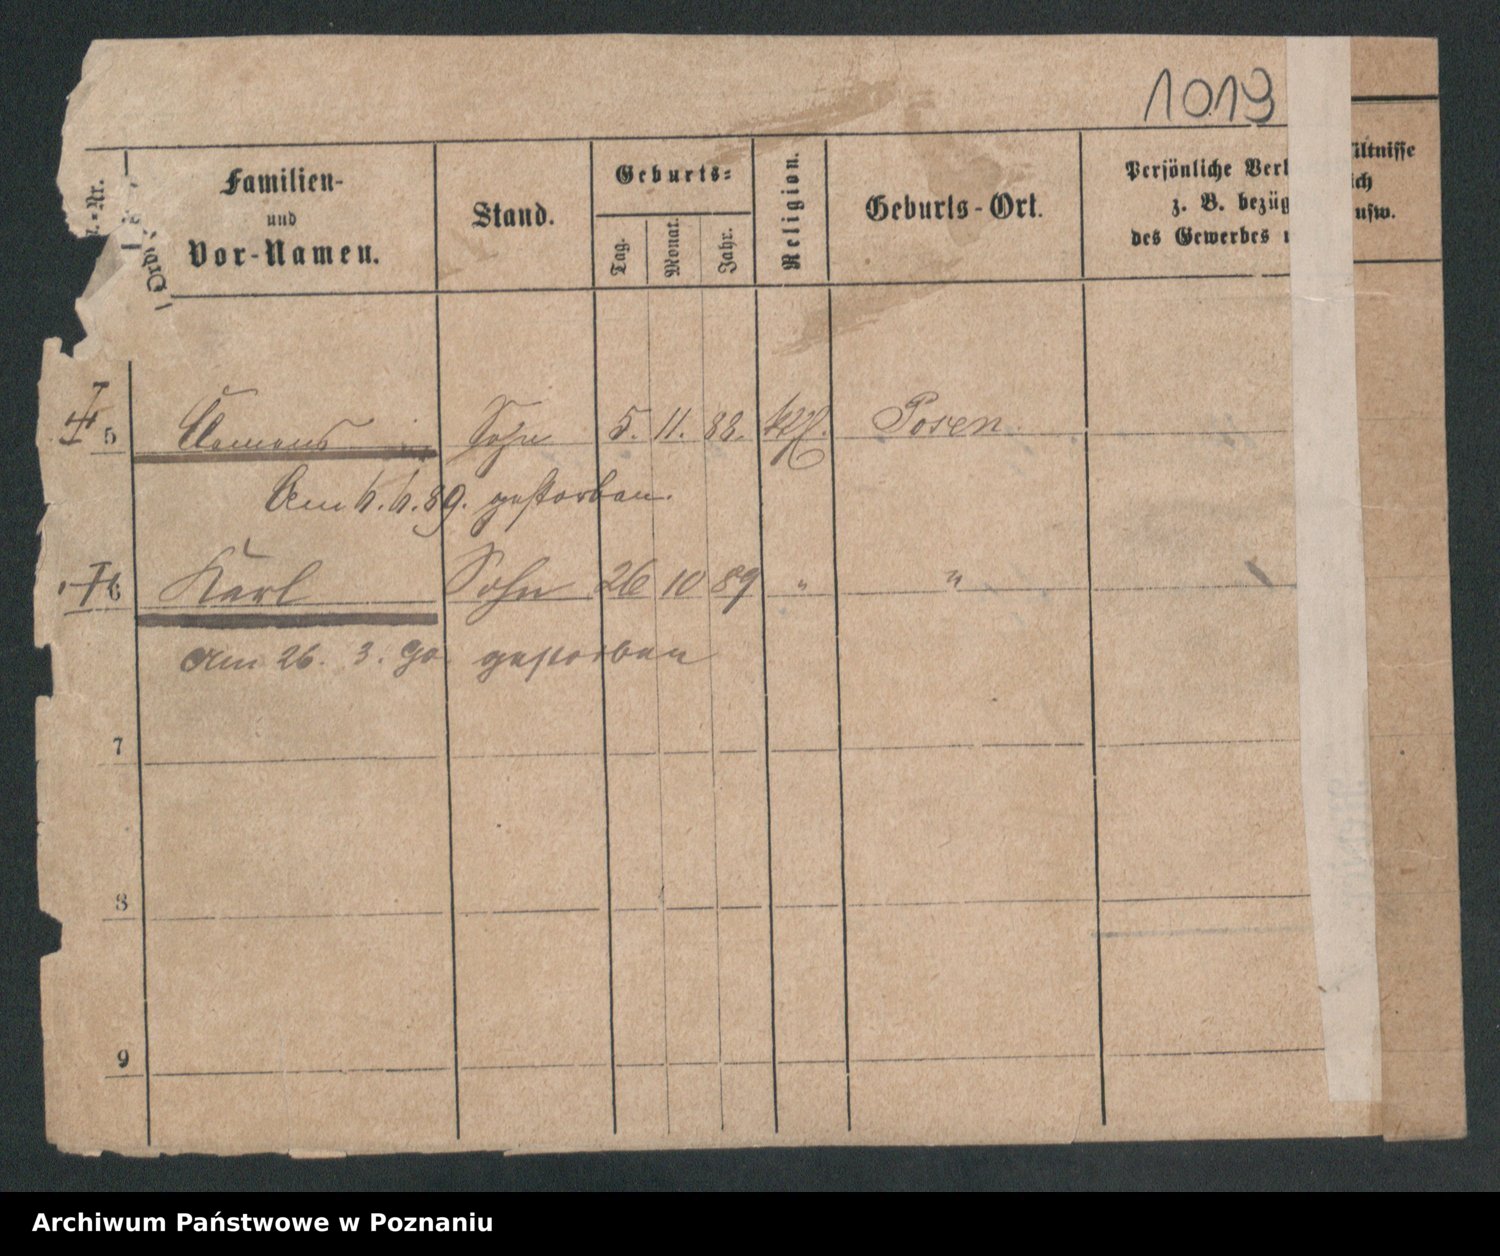 1019
Familien-
und
Vor-Namen.
Stand.
Geburts=
Tag.
Monat.
Jahr.
Religion.
Geburts-Ort.
Persönliche Verhältnisse
z. B. bezüglich
des Gewerbes usw.
5 Clemens Sohn 5. 11. 88. kath. Posen.
Am 4. 4. 89. gestorben.
6 Karl Sohn 26 10 89 " "
Am 26. 3. 90. gestorben
7
8
9
Archiwum Państwowe w Poznaniu